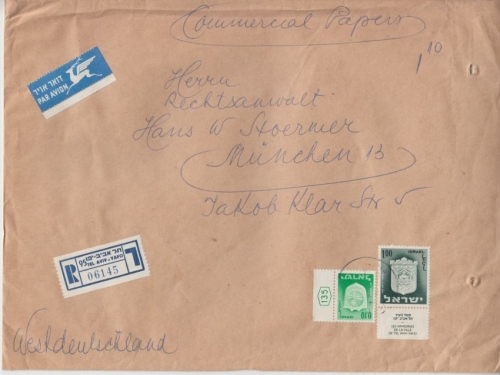 Commercial Papers
1 10
דואר אויר
PAR AVION
Herrn
Rechtsanwalt
Hans W Stoermer
München 13
Jakob Klar Str 5
R
תל אביב-יפו
TEL AVIV-YAFO
06145
135
ISRAEL
0.10
ISRAEL
1.00
ישראל
Westdeutschland